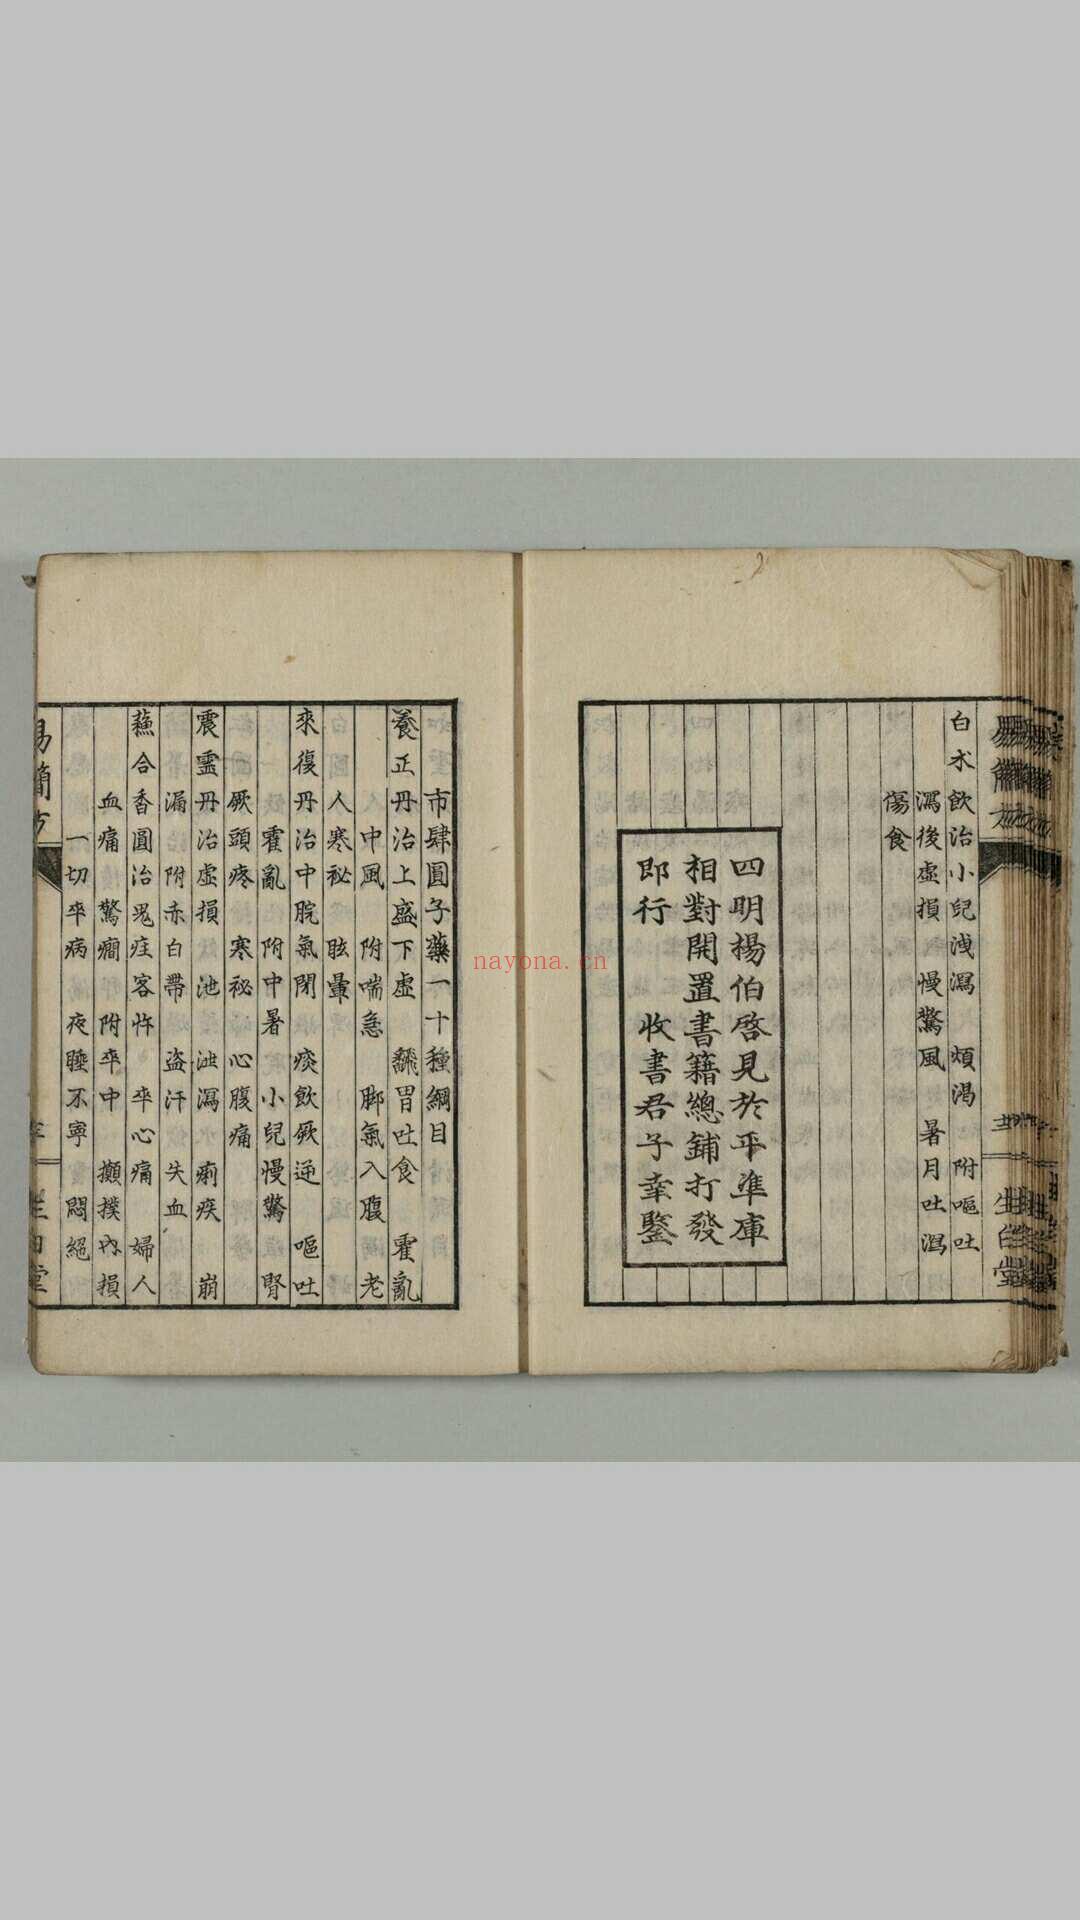 白朮飲治小兒洩瀉 煩渴 附嘔吐
瀉後虛損 慢驚風 暑月吐瀉
傷食
四明楊伯啓見於平準庫
相對開置書籍總鋪打發
即行 收書君子幸鑒
市肆圓子藥一十種綱目
養正丹治上盛下虛 翻胃吐食 霍亂
中風 附喘急 脚氣入腹 老
人寒祕 眩暈
來復丹治中脘氣閉 痰飲厥逆 嘔吐
霍亂 附中暑 小兒慢驚 腎
厥頭疼 寒祕 心腹痛
震靈丹治虛損 泄瀉 痢疾 崩
漏 附赤白帶 盜汗 失血
蘇合香圓治鬼疰客忤 卒心痛 婦人
血痛 驚癇 附卒中 攧撲內損
一切卒病 夜睡不寧 悶絕
易簡方
生白堂
nayona.cn